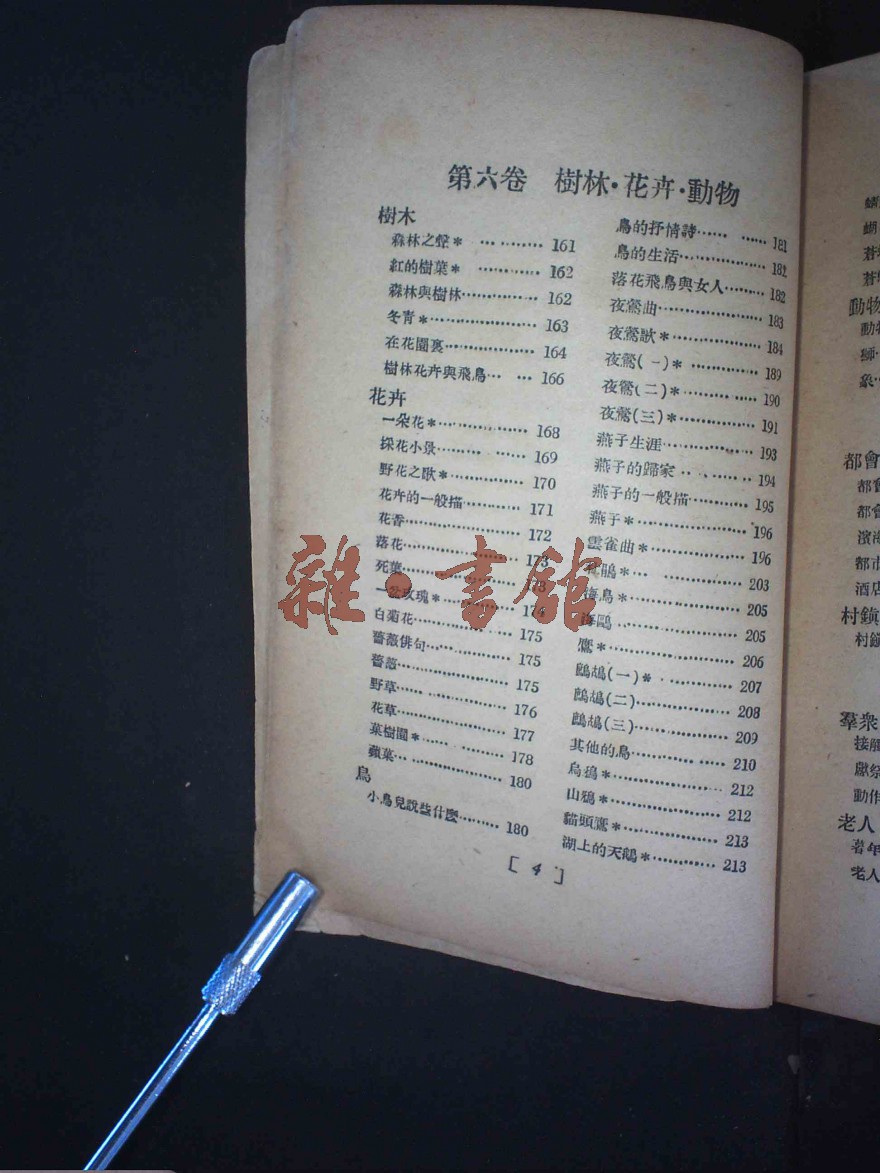 第六卷 樹林·花卉·動物
樹木
森林之聲* ………… 161
紅的樹葉* ………… 162
森林與樹林………… 162
冬青*………… 163
在花園裏………… 164
樹林花卉與飛鳥…… 166
花卉
一朶花*………… 168
採花小景………… 169
野花之歌*………… 170
花卉的一般描………… 171
花香………… 172
落花………… 173
死葉………… 173
一盆玫瑰*………… 174
白菊花………… 175
薔薇俳句………… 175
薔薇………… 175
野草………… 176
花草………… 177
菓樹園*………… 178
蘋菓………… 180
鳥
小鳥兒說些什麽……… 180
鳥的抒情詩………… 181
鳥的生活………… 182
落花飛鳥與女人……… 182
夜鶯曲………… 183
夜鶯歌*………… 184
夜鶯(一)* ………… 189
夜鶯(二)*………… 190
夜鶯(三)*………… 191
燕子生涯………… 193
燕子的歸家 ………… 194
燕子的一般描………… 195
燕子*………… 196
雲雀曲*………… 196
鵑*………… 203
海鳥*………… 205
海鷗………… 205
鷹*………… 206
鷓鴣(一)*………… 207
鷓鴣(二)………… 208
鷓鴣(三)………… 209
其他的鳥………… 210
烏鴉*………… 212
山鴉*………… 212
貓頭鷹*………… 213
湖上的天鵝*………… 213
[ 4 ]
雜·書館
動物
獅
象
都會
都
都
濱
都市
酒店
村鎮
村鎮
羣衆
接
獻祭
動作
老人
老人